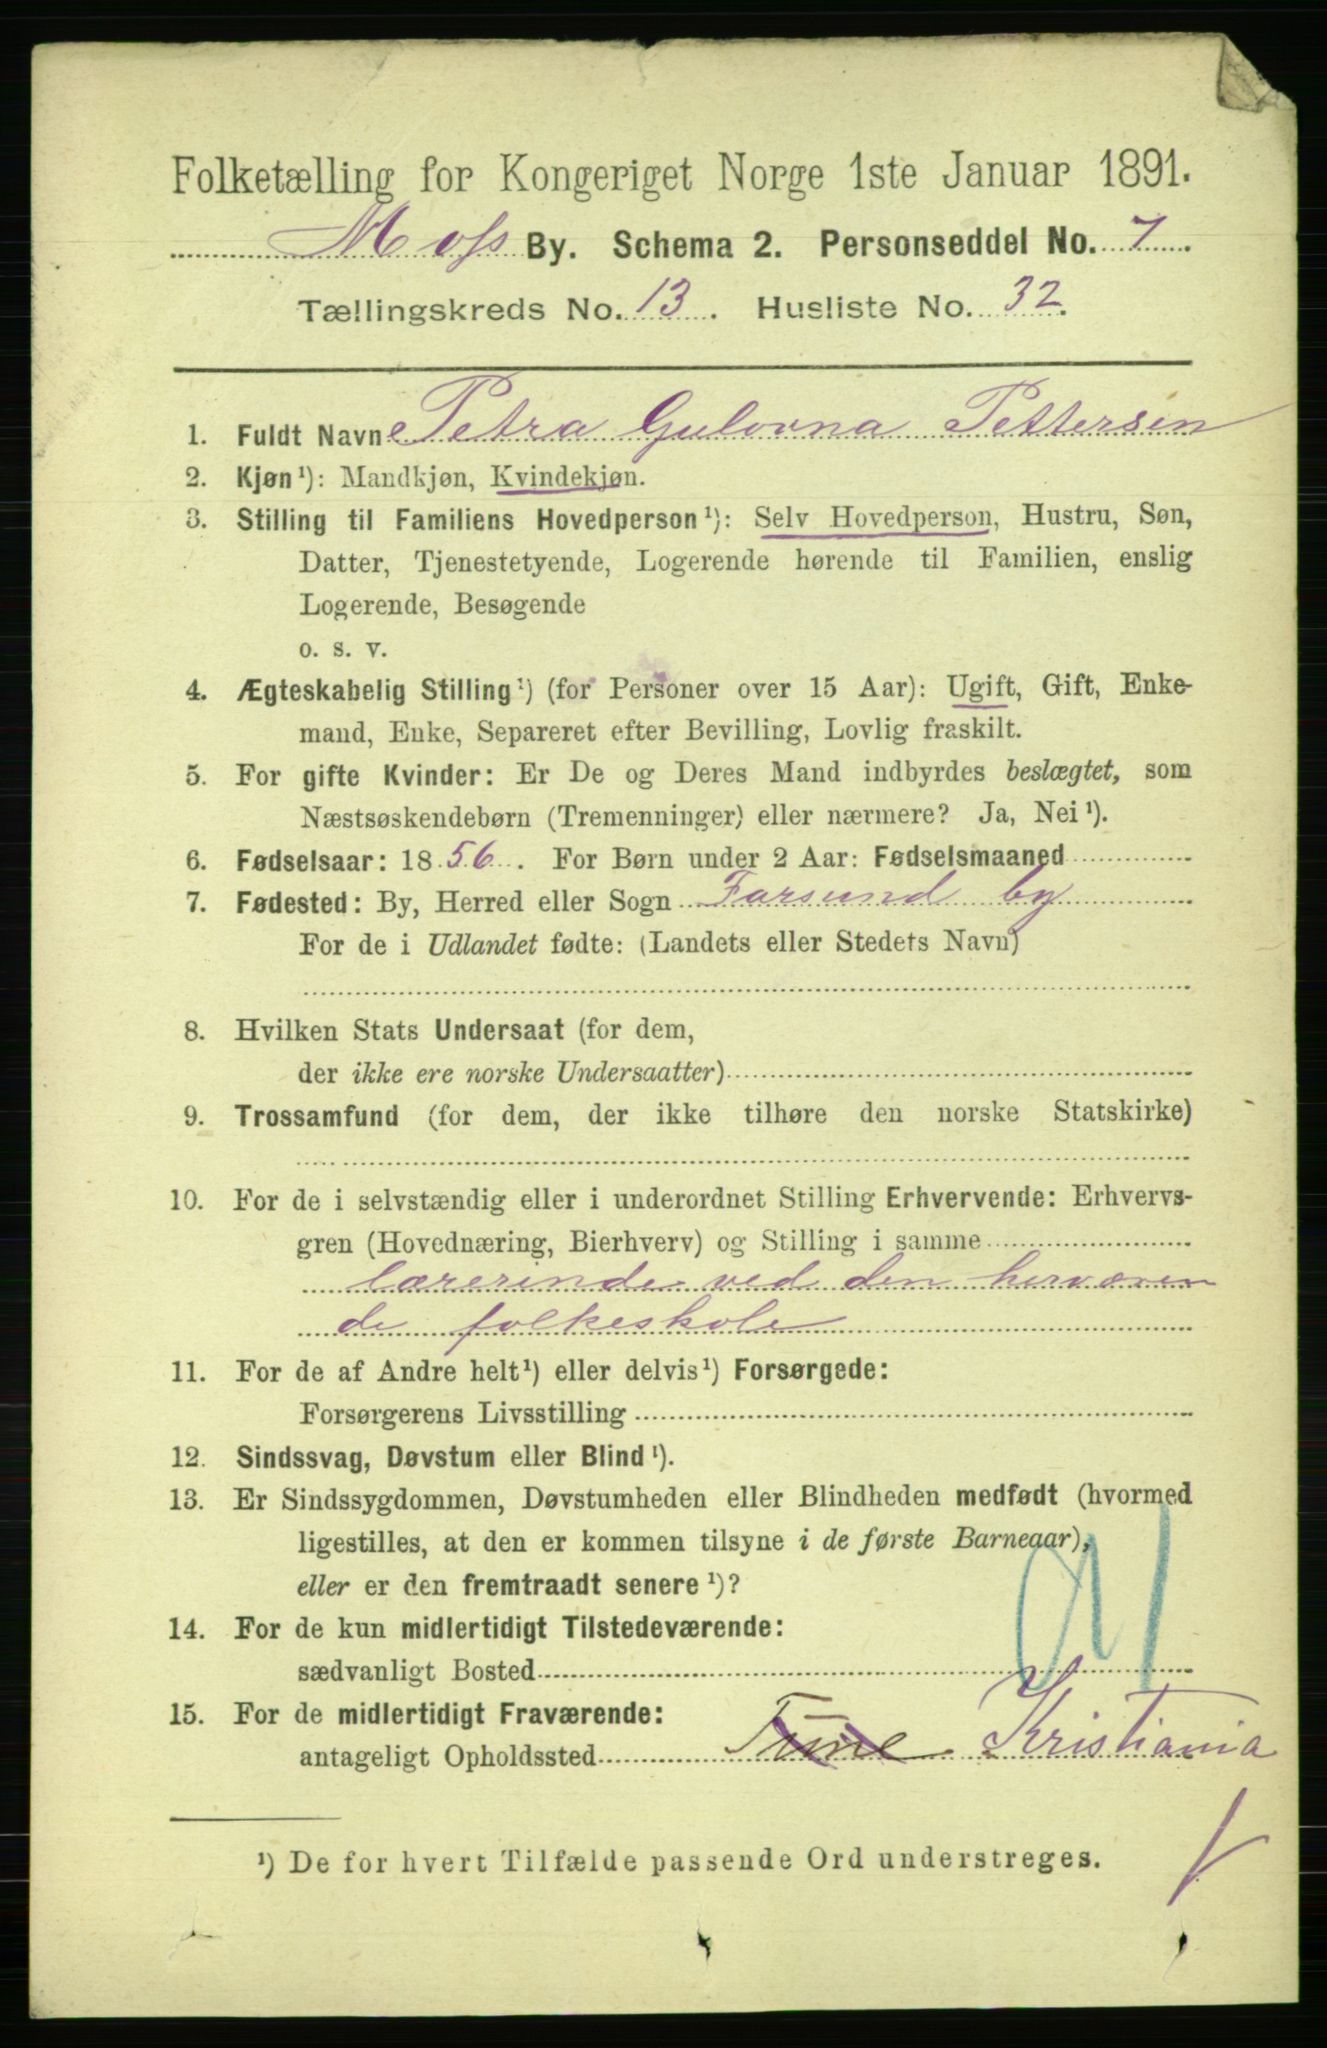 Folketælling for Kongeriget Norge 1ste Januar 1891.
Moss By. Schema 2. Personseddel No. 7.
Tællingskreds No. 13. Husliste No. 32.
1. Fuldt Navn: Petra Gulovna Pettersen
2. Kjøn ¹): Mandkjøn, Kvindekjøn.
3. Stilling til Familiens Hovedperson ¹): Selv Hovedperson, Hustru, Søn,
Datter, Tjenestetyende, Logerende hørende til Familien, enslig
Logerende, Besøgende
o. s. v.
4. Ægteskabelig Stilling ¹) (for Personer over 15 Aar): Ugift, Gift, Enke-
mand, Enke, Separeret efter Bevilling, Lovlig fraskilt.
5. For gifte Kvinder: Er De og Deres Mand indbyrdes beslægtet, som
Næstsøskendebørn (Tremenninger) eller nærmere? Ja, Nei ¹).
6. Fødselsaar: 1856. For Børn under 2 Aar: Fødselsmaaned
7. Fødested: By, Herred eller Sogn Farsund by
For de i Udlandet fødte: (Landets eller Stedets Navn)
8. Hvilken Stats Undersaat (for dem,
der ikke ere norske Undersaatter)
9. Trossamfund (for dem, der ikke tilhøre den norske Statskirke)
10. For de i selvstændig eller i underordnet Stilling Erhvervende: Erhvervs-
gren (Hovednæring, Bierhverv) og Stilling i samme
lærerinde ved den herværen
de folkeskole
11. For de af Andre helt ¹) eller delvis ¹) Forsørgede:
Forsørgerens Livsstilling
12. Sindssvag, Døvstum eller Blind ¹).
13. Er Sindssygdommen, Døvstumheden eller Blindheden medfødt (hvormed
ligestilles, at den er kommen tilsyne i de første Barneaar),
eller er den fremtraadt senere ¹)?
14. For de kun midlertidigt Tilstedeværende:
sædvanligt Bosted
15. For de midlertidigt Fraværende:
antageligt Opholdssted Tune Kristiania
¹) De for hvert Tilfælde passende Ord understreges.